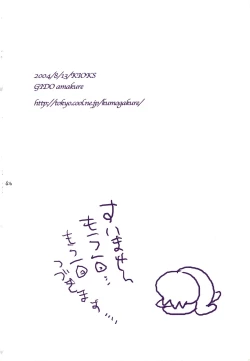 2004/8/13/KIOKS
GIDO amakure
http://tokyo.cool.ne.jp/kumogakure/
すいませ〜ん
もう一回…
もう一回
つづきます…